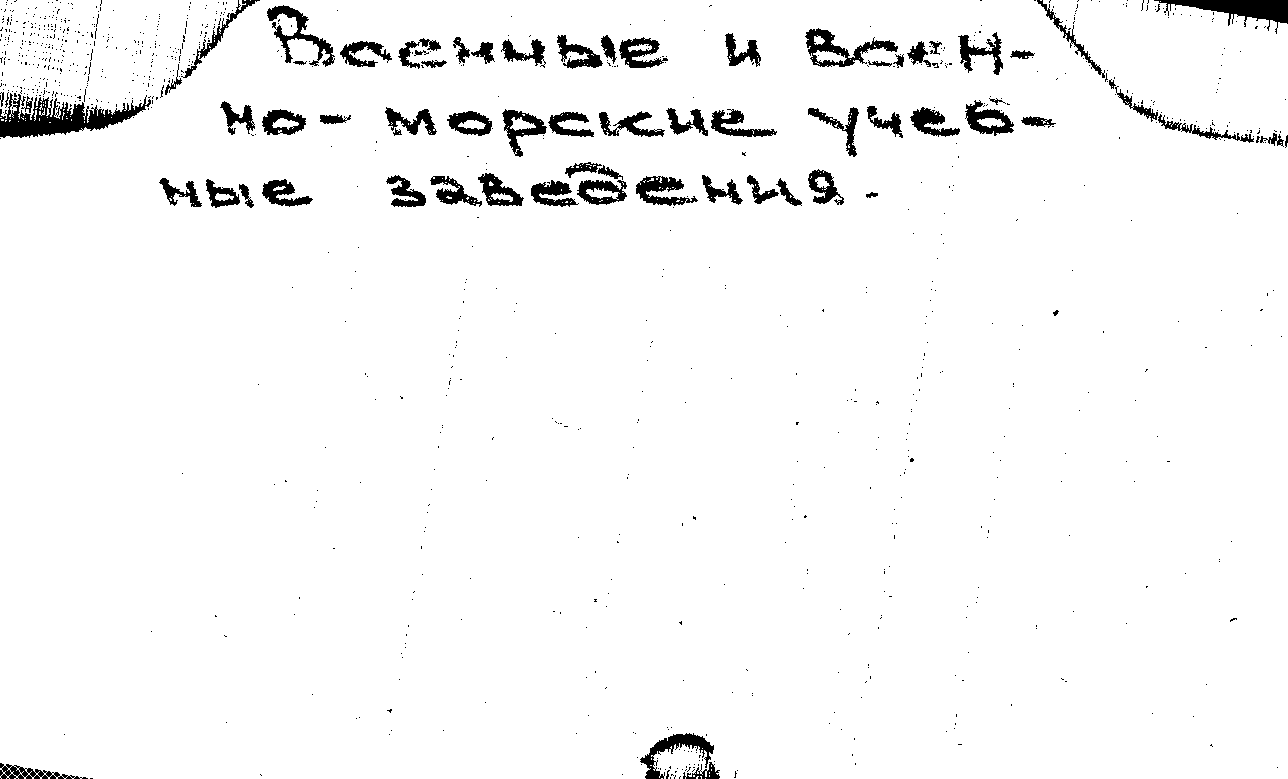 Военные и воен-
но-морские учеб-
ные заведения.